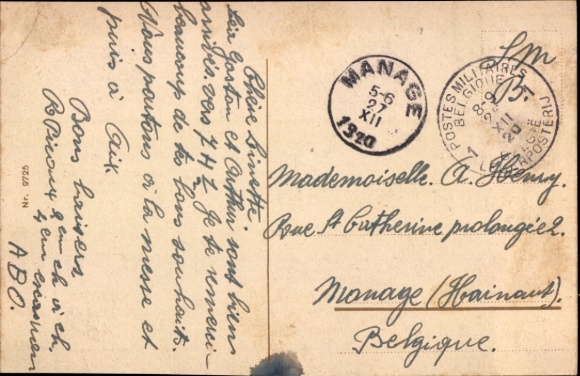 Chère Ninette.
Les Gaston et Arthur sont bien
arrivés vers 7 h ½ Je te remercie
beaucoup de tes bons souhaits.
Nous partons à la messe et
puis à Aix
Bons baisers
ABO.
Nr. 9725
MANAGE
5-6
27
XII
1920
POSTES MILITAIRES
BELGIQUE
XII
20
S.M
B.
Mademoiselle. A. Henry.
Rue Ste Catherine prolongée 2.
Manage (Hainaut).
Belgique.